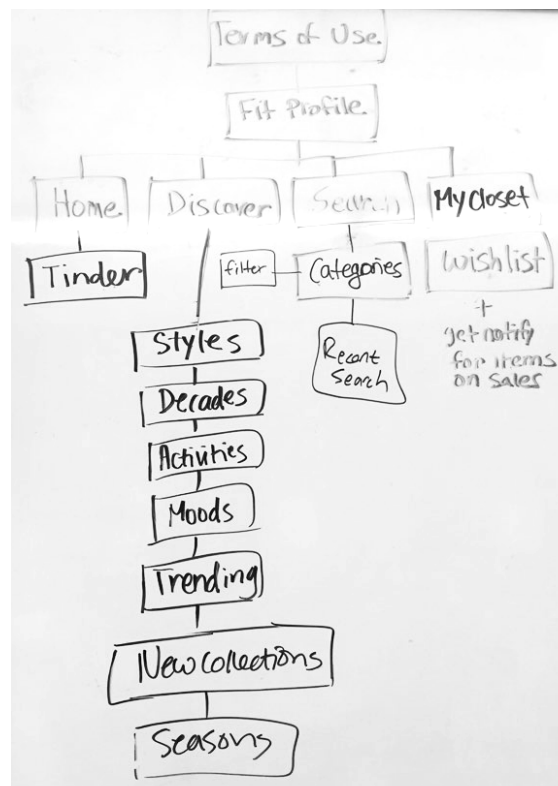 Terms of Use.
Fit Profile.
Home.
Discover
Search
My Closet
Tinder
filter
Categories
Wishlist
+
get notify
for items
on sales
Recent
Search
Styles
Decades
Activities
Moods
Trending
New collections
Seasons